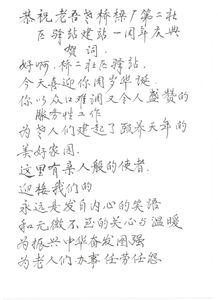 恭祝老吾老桥梁厂第二社
区驿站建站一周年庆典
贺词
好啊,桥二社区驿站,
今天喜迎你周岁华诞。
你以众口难调又令人盛赞的
服务性工作
为老人们建起了颐养天年的
美好家园。
这里有亲人般的使者
迎接我们的
永远是发自内心的笑语
和无微不至的关心与温暖
为振兴中华奋发图强
为老人们办事任劳任怨